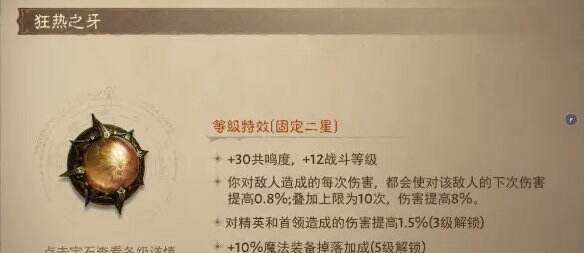 狂热之牙
等級特效(固定二星)
+30共鸣度，+12战斗等级
你对敌人造成的每次伤害，都会使对该敌人的下次伤害
提高0.8%;叠加上限为10次，伤害提高8%。
对精英和首领造成的伤害提高1.5%(3级解锁)
点击宝石查看各级详情
+10%魔法装备掉落加成(5级解锁)